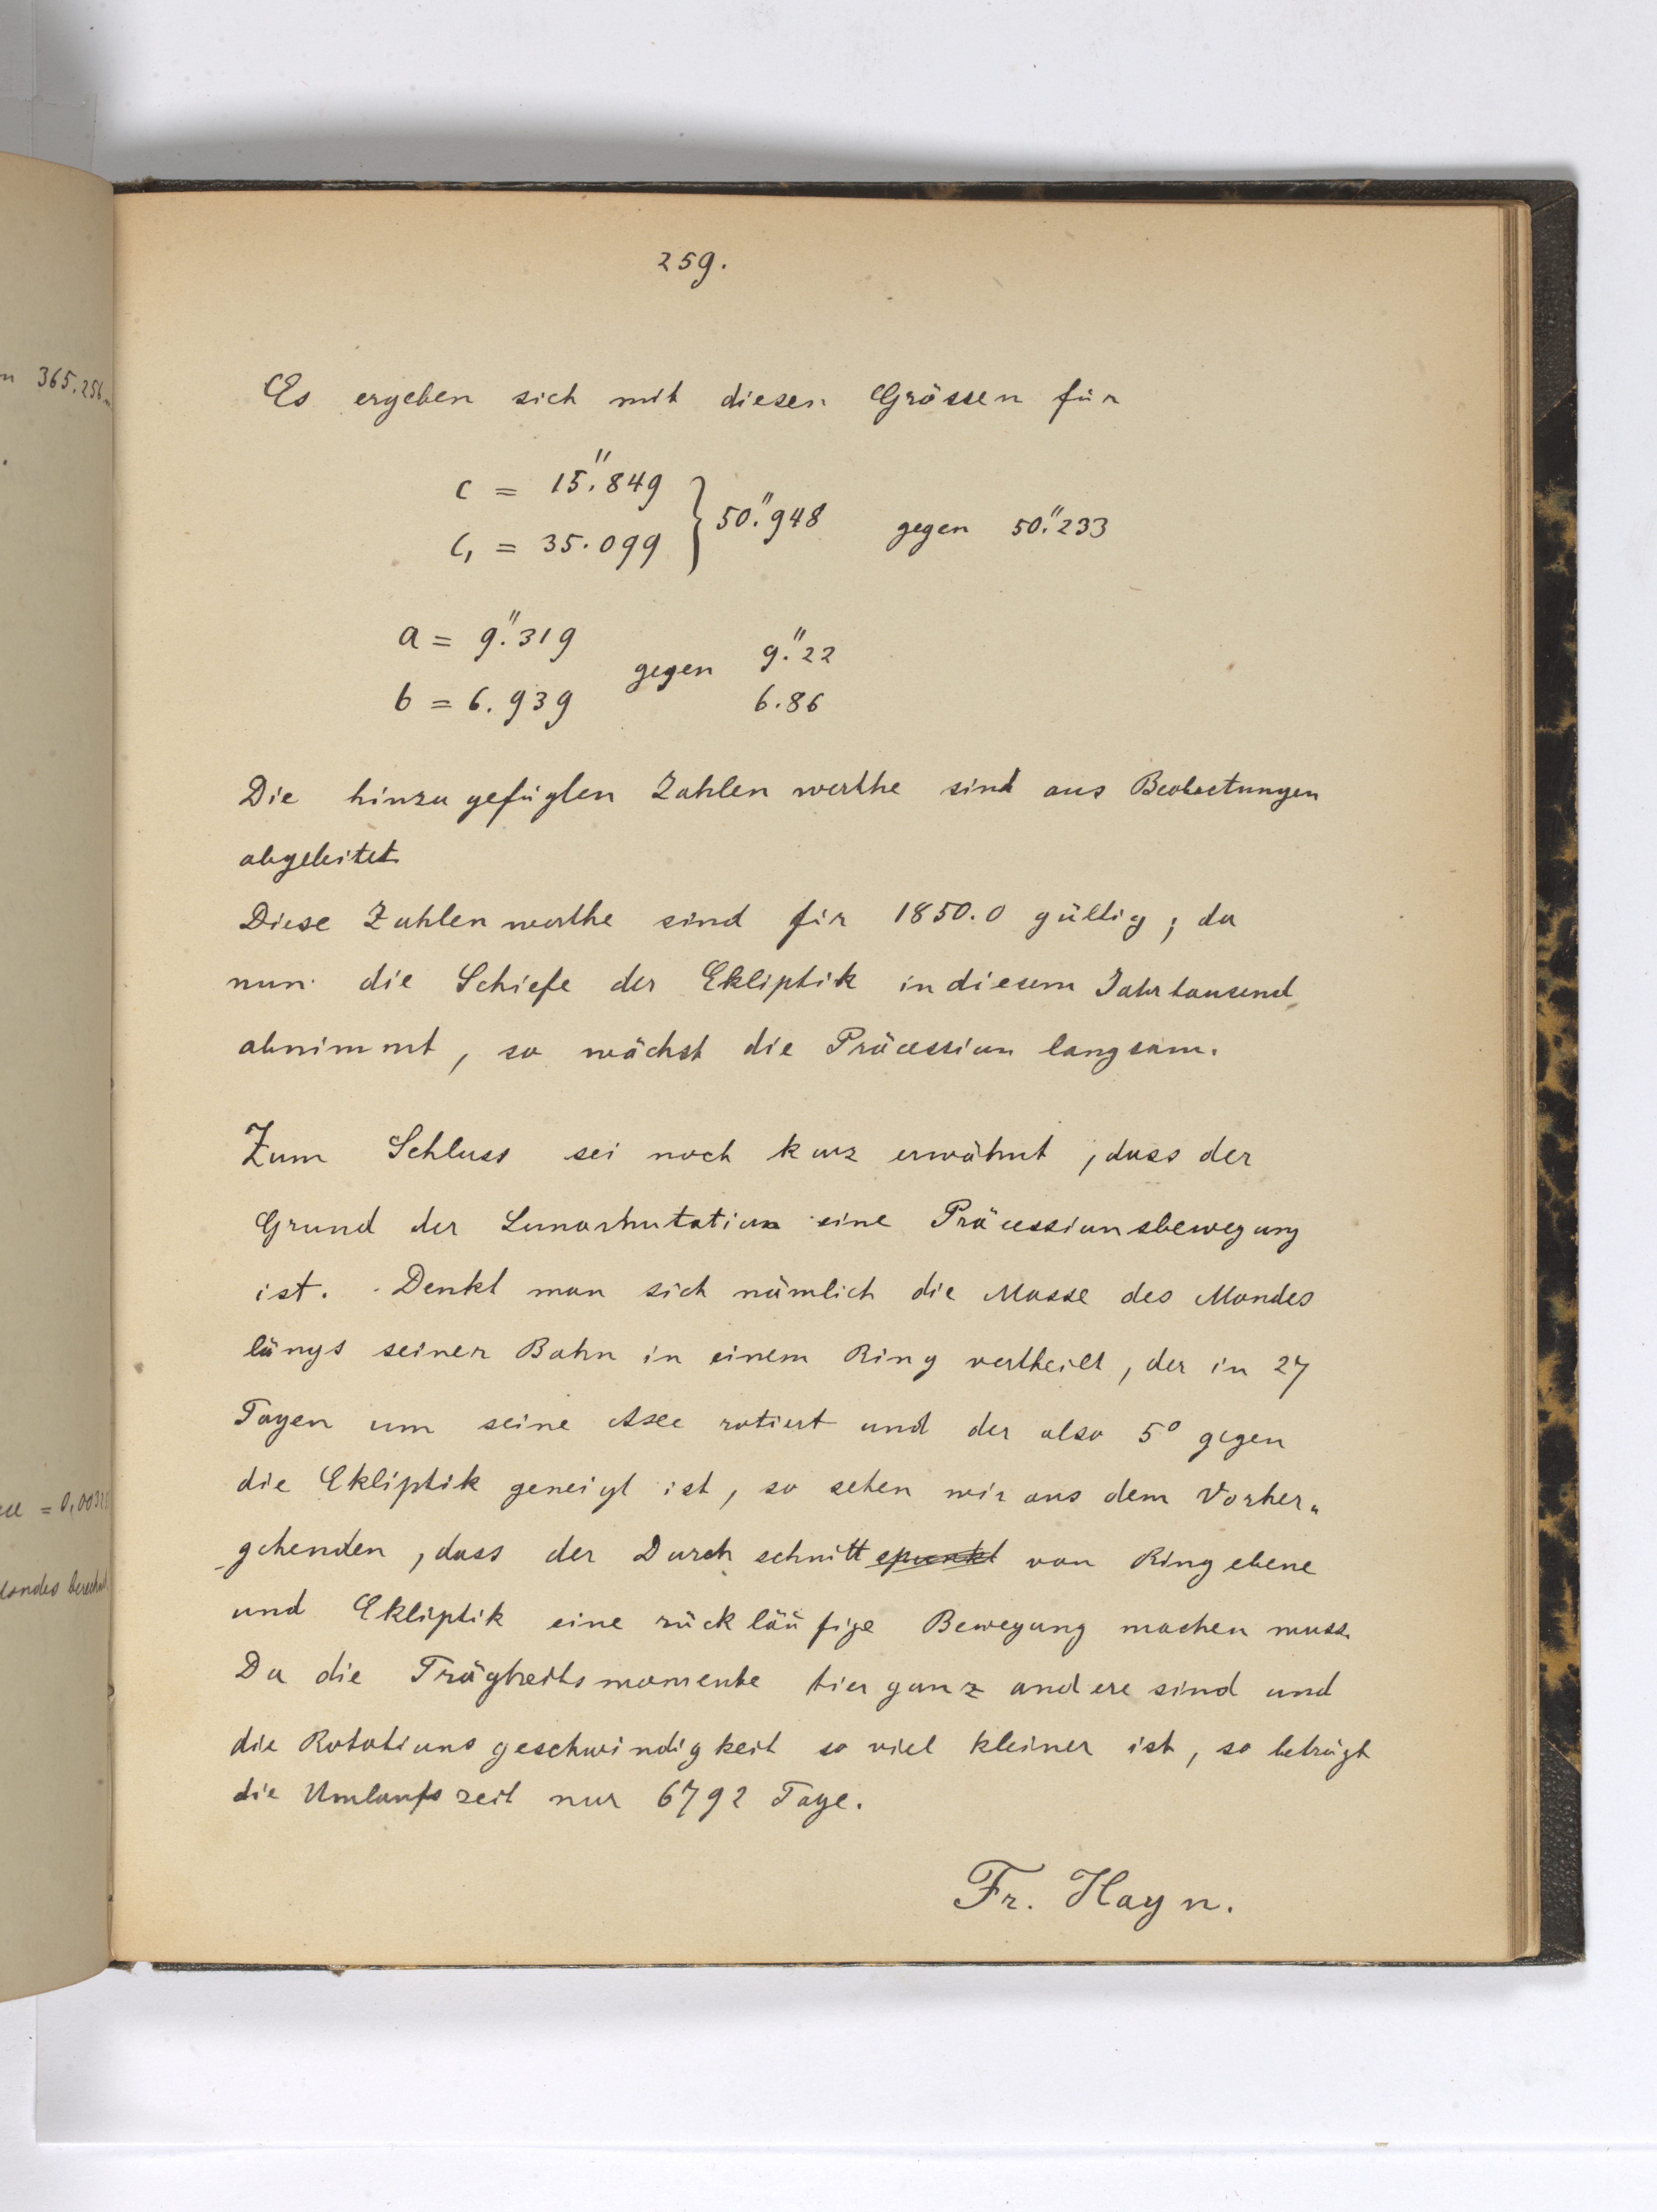 259.
Es ergeben sich mit diesen Grössen für
c = 15."849
c₁ = 35.099 } 50."948 gegen 50."233
a = 9."319
gegen 9."22
b = 6.939 6.86
Die hinzugefügten Zahlenwerthe sind aus Beobactungen
abgeleitet.
Diese Zahlenwerthe sind für 1850.0 gültig; da
nun die Schiefe der Ekliptik in diesem Jahrtausend
abnimmt, so wächst die Präcession langsam.
Zum Schluss sei noch kurz erwähnt, dass der
Grund der Lunarnutation eine Präcessionsbewegung
ist. Denkt man sich nämlich die Masse des Mondes
längs seiner Bahn in einem Ring vertheilt, der in 27
Tagen um seine Axe rotiert und der also 5° gegen
die Ekliptik geneigt ist, so sehen wir aus dem Vorher„
gehenden, dass der Durchschnittspunkt von Ringebene
und Ekliptik eine rückläufige Bewegung machen muss.
Da die Trägheitsmomente hier ganz andere sind und
die Rotationsgeschwindigkeit so viel kleiner ist, so beträgt
die Umlaufszeit nur 6792 Tage.
Fr. Hayn.
365.256
= 0,003